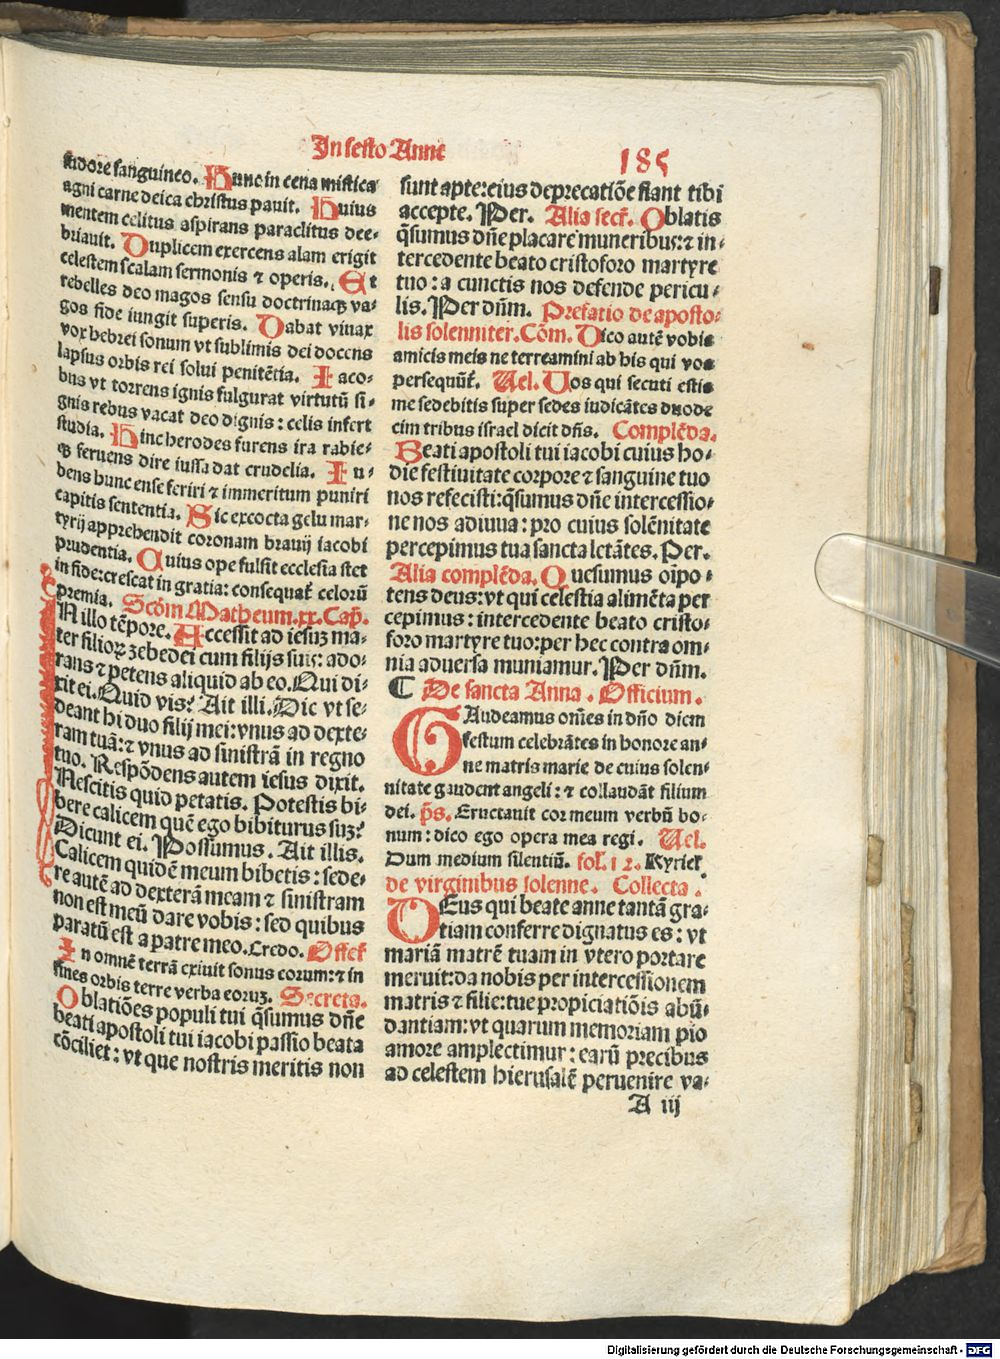 In festo Anne
185
stidore sanguineo. Hunc in cena mistica
agni carne deica christus pauit. Huius
mentem celitus aspirans paraclitus dee-
briauit. Duplicem exercens alam erigit
celestem scalam sermonis ⁊ operis. Et
rebelles deo magos sensu doctrinaqꝫ va-
gos fide iungit superis. Dabat viuax
vox hebrei sonum vt sublimis dei docens
lapsus orbis rei solui penitētia. Iaco-
bus vt torrens ignis fulgurat virtutū si-
gnis rebus vacat deo dignis: celis infert
studia. Hinc herodes furens ira rabie-
qꝫ feruens dire iussa dat crudelia. Iu-
bens hunc ense feriri ⁊ immeritum puniri
capitis sententia. Sic excocta gelu mar-
tyrij apprehendit coronam brauij iacobi
prudentia. Cuius ope fulsit ecclesia stet
in fide: crescat in gratia: consequat̄ celorū
premia. Scḋm Matheum. xx. Cap̄.
IN illo tēpore. Accessit ad iesuꝫ ma-
ter filioꝝ zebedei cum filijs suis: ado-
rans ⁊ petens aliquid ab eo. Qui di-
xit ei. Quid vis? Ait illi. Dic vt se-
deant hi duo filij mei: vnus ad dexte-
ram tuā: ⁊ vnus ad sinistrā in regno
tuo. Respōdens autem iesus dixit.
Nescitis quid petatis. Potestis bi-
bere calicem quē ego bibiturus suꝫ?
Dicunt ei. Possumus. Ait illis.
Calicem quidē meum bibetis: sede-
re autē ad dexterā meam ⁊ sinistram
non est meū dare vobis: sed quibus
paratū est a patre meo. Credo. Offer̄
In omnē terrā exiuit sonus eorum: ⁊ in
fines orbis terre verba eoruꝫ. Secreta.
Oblatiōes populi tui q̄sumus dn̄e
beati apostoli tui iacobi passio beata
cōciliet: vt que nostris meritis non
sunt apte: eius deprecatiōe fiant tibi
accepte. Per. Alia secr̄. Oblatis
q̄sumus dn̄e placare muneribus: ⁊ in-
tercedente beato cristoforo martyre
tuo: a cunctis nos defende pericu-
lis. Per dn̄m. Prefatio de aposto-
lis solenniter. Cōm. Dico autē vobis
amicis meis ne terreamini ab his qui vos
persequūt̄. Uel. Uos qui secuti estis
me sedebitis super sedes iudicātes duode
cim tribus israel dicit dn̄s. Complēda.
Beati apostoli tui iacobi cuius ho-
die festiuitate corpore ⁊ sanguine tuo
nos refecisti: q̄sumus dn̄e intercessio-
ne nos adiuua: pro cuius solēnitate
percepimus tua sancta letātes. Per.
Alia complēda. Quesumus oīpo-
tens deus: vt qui celestia alimēta per
cepimus: intercedente beato cristo-
foro martyre tuo: per hec contra om-
nia aduersa muniamur. Per dn̄m.
C De sancta Anna. Officium.
GAudeamus om̄es in dn̄o diem
festum celebrātes in honore an-
ne matris marie de cuius solen-
nitate gaudent angeli: ⁊ collaudāt filium
dei. p̄s. Eructauit cor meum verbū bo-
num: dico ego opera mea regi. Uel.
Dum medium silentiū. fol. 12. Kyriel̄
de virginibus solenne. Collecta.
DEus qui beate anne tantā gra-
tiam conferre dignatus es: vt
mariā matrē tuam in vtero portare
meruit: da nobis per intercessionem
matris ⁊ filie: tue propiciatiōis abū-
dantiam: vt quarum memoriam pio
amore amplectimur: earū precibus
ad celestem hierusalē peruenire va-
A iij
Digitalisierung gefördert durch die Deutsche Forschungsgemeinschaft - DFG